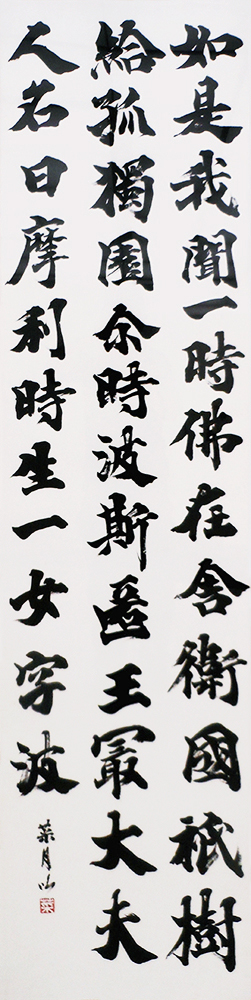 如是我聞一時佛在舎衛國祇樹
給孤獨園尓時波斯匿王冣大夫
人名曰摩利時生一女字波
葉月山